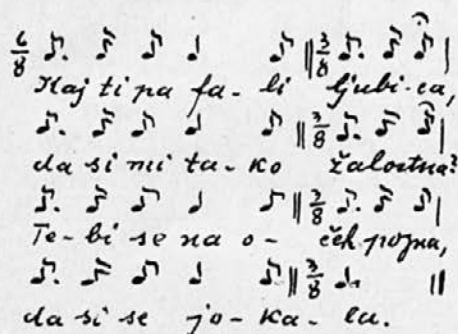 6/8 3/8
Kaj ti pa fa-li ljubi-ca,
3/8
da si mi ta-ko žalostna?
3/8
Te-bi se na o-čeh pozna,
3/8
da si se jo-ka-la.